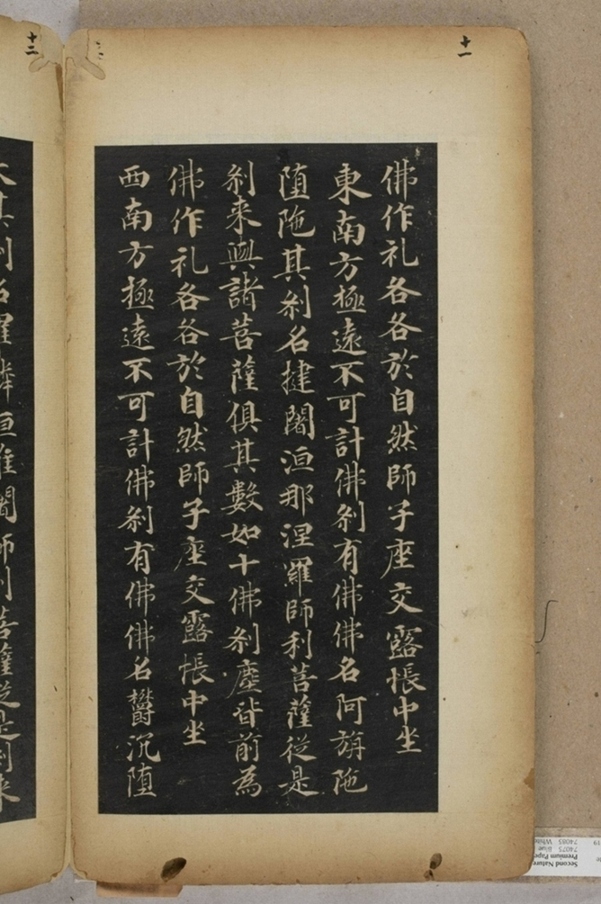 十一
佛作礼各各於自然師子座交露帳中坐
東南方極遠不可計佛刹有佛佛名阿旃陁
墮陁其刹名揵闍洹那涅羅師利菩薩從是
刹来與諸菩薩俱其數如十佛刹塵皆前為
佛作礼各各於自然師子座交露帳中坐
西南方極遠不可計佛刹有佛佛名欝沉墮
十二
其刹名羅
師利菩薩從是刹来
Second Nature
Premium Pape
74075
74085 White